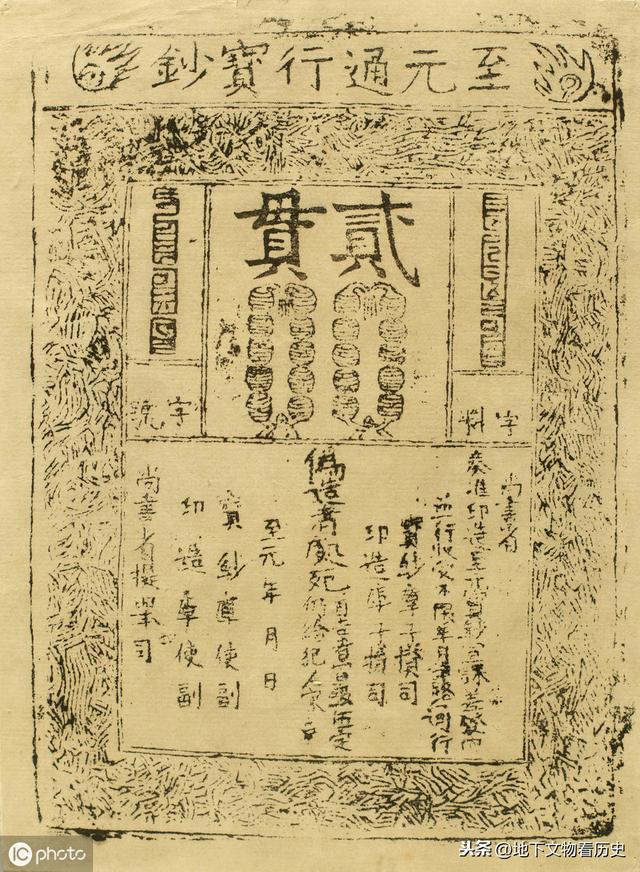 至元通行寶鈔
貳貫
字料
字號
尚書省
奏准印造至元寶鈔宣課差役內
並行收受不限年月諸路通行
寶鈔庫子攢司
印造庫子攢司
偽造者處死
首告者賞銀伍定
仍給犯人家產
至元 年 月 日
寶鈔庫使副
印造庫使副
尚書省提舉司
iC photo
头条 @地下文物看历史